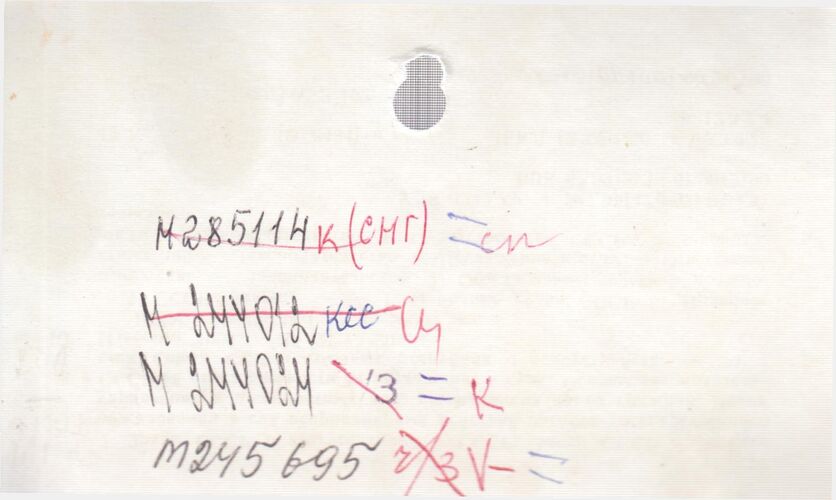 М285114 К (СНГ) = сп
М 244012 КСС Сч
М 244024 '3 = К
М245695 ч/з V- =